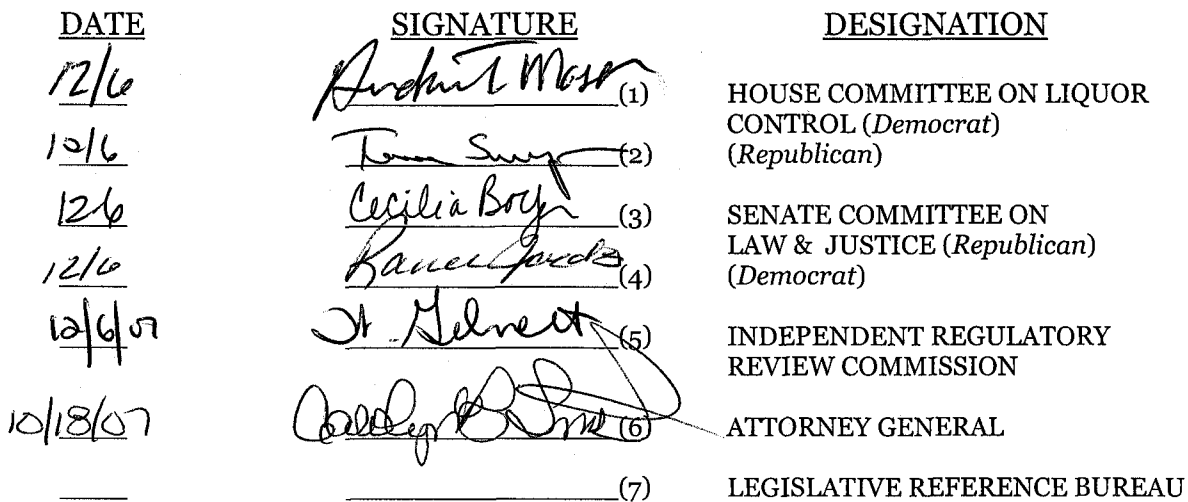 DATE SIGNATURE DESIGNATION
12/6 (1) HOUSE COMMITTEE ON LIQUOR
CONTROL (Democrat)
12/6 (2) (Republican)
12/6 Cecilia (3) SENATE COMMITTEE ON
LAW & JUSTICE (Republican)
12/6 (4) (Democrat)
12/6/07 (5) INDEPENDENT REGULATORY
REVIEW COMMISSION
10/18/07 (6) ATTORNEY GENERAL
(7) LEGISLATIVE REFERENCE BUREAU